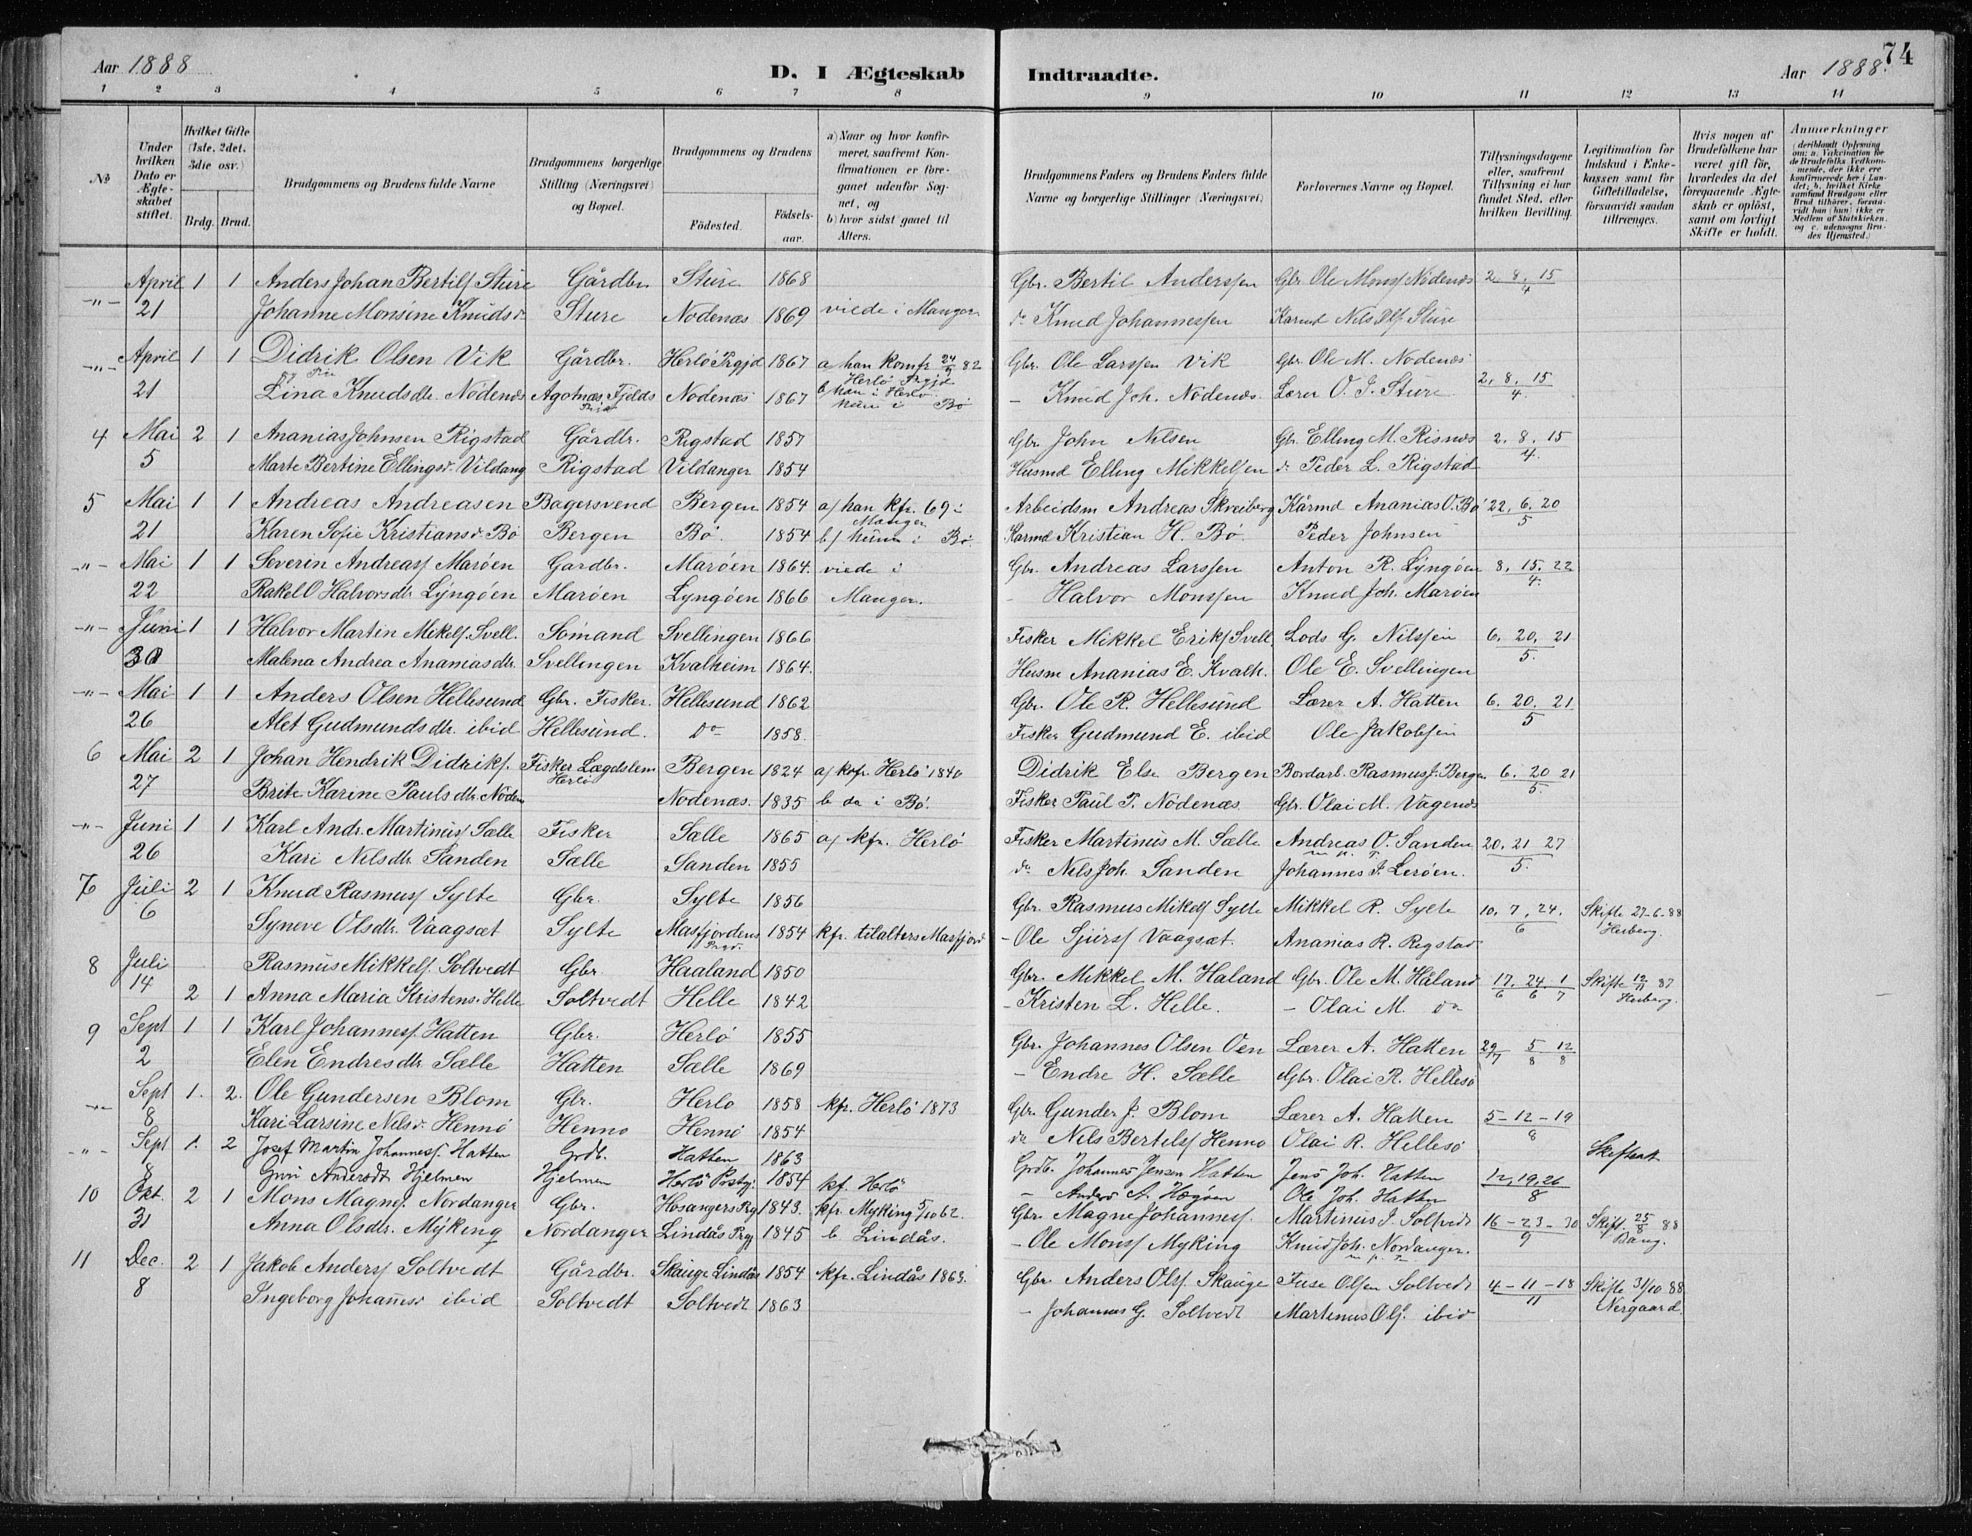 74
Aar 1888 D. I Ægteskab Indtraadte. Aar 1888.
1 2 3 4 5 6 7 8 9 10 11 12 13 14
No
Under hvilken Dato er Ægteskabet stiftet.
Hvilket Gifte (1ste, 2det, 3die osv.)
Brdg. Brud.
Brudgommens og Brudens fulde Navne
Brudgommens borgerlige Stilling (Næringsvei) og Bopæl.
Brudgommens og Brudens
Fødested. Fødselsaar.
a) Naar og hvor konfirmeret, saafremt Konfirmationen er foregaaet udenfor Sognet, og b) hvor sidst gaaet til Alters.
Brudgommens Faders og Brudens Faders fulde Navne og borgerlige Stillinger (Næringsvei)
Forlovernes Navne og Bopæl.
Tillysningsdagene eller, saafremt Tillysning ei har fundet Sted, efter hvilken Bevilling.
Legitimation for Indskud i Enkekassen samt for Giftetilladelse, forsaavidt saadan tiltrænges.
Hvis nogen af Brudefolkene har været gift før, hvorledes da det foregaaende Ægteskab er opløst, samt om lovligt Skifte er holdt.
Anmærkninger (deriblandt Oplysning om: a. Vakcination for de Brudefolks Vedkommende, der ikke ere konfirmerede her i Landet; b. hvilket Kirkesamfund Brudgom eller Brud tilhører, forsaavidt han (hun) ikke er Medlem af Statskirken, og c. udensogns Brudes Hjemsted.)
-"- April 1 1 Anders Johan Bertils. Sture Gårdbr. Sture 1868 Gbr. Bertil Anderssen Gbr. Ole Monss. Nodenæs 2. 8. 15/4
21 Johanne Monsine Knudsd. Sture Nodenæs 1869 viede i Manger. do Knud Johannessen Karmd Nils Ols. Sture
-"- April 1 1 Didrik Olsen Vik Gårdbr. Herlø Prgjd 1867 a/ han komfr 24/9 82 Gbr. Ole Larssen Vik Gbr. Ole M. Nodenæs
Herlø Prgjd
21 Lina Knudsdtr. Nodenæs Agotnæs Fjelds Nodenæs 1867 b/ han i Herlø. - Knud Joh. Nodenæs. Lærer O. J. Sture 2, 8, 15/4.
hun i Bø
4 Mai 2 1 Ananias Johnsen Rigstad Gårdbr. Rigstad 1857 Gbr. John Nilsen Gb. Elling M. Risnæs 2. 8. 15/4
5 Marte Bertine Ellingsd. Vildang Rigstad Vildanger 1854 Husmd Elling Mikkelsen do Peder L. Rigstad
5 Mai 1 1 Andreas Andreasen Bagersvend Bergen 1854 a/ han kfr. 69 i Arbeidsm Andreas Skreiberg Kårmd Ananias O. Bø 22, 6. 20/5
Manger
21 Karen Sofie Kristiansd. Bø Bergen Bø. 1854 b/ hun i Bø Karmd Kristian H. Bø. Peder Johnsen
-"- Mai 1 1 Severin Andreass. Marøen Gardbr. Marøen 1864. viede i Gbr. Andreas Larssen Anton R. Lyngøen 8, 15, 22/4.
22 Rakel O Halvorsdtr. Lyngøen Marøen Lyngøen 1866 Manger. - Halvor Monssen Knud Joh. Marøen
-"- Juni 1 1 Halvor Martin Mikels. Svell. Sømand Svellingen 1866 Fisker Mikkel Eriks. Svell. Lods G. Nilssen 6. 20. 21/5.
30 Malena Andrea Ananiasdtr. Svellingen Kvalheim 1864. Husm Ananias E. Kvalh. Ole E. Svellingen
-"- Mai 1 1 Anders Olsen Hellesund Gbr. Fisker. Hellesund 1862 Gbr. Ole R. Hellesund Lærer A. Hatten 6. 20. 21/5
26 Alet Gudmundsdtr. ibid Hellesund. do 1858. Fisker Gudmund E. ibid Ole Jakobsen
6 Mai 2 1 Johan Hendrik Didriks. Fisker Lægdslem Bergen 1824 a/ kfr. Herlø 1840 Didrik Else Bergen Bordarb. Rasmus J. Bergen 6. 20 21/5.
Herlø
27 Brite Karine Paulsdtr. Noden Nodenæs. 1835 b do i Bø. Fisker Paul P. Nodenæs. Gbr. Olai M. Vagenæs
-"- Juni 1 1 Karl Andr. Martinus. Sælle Fisker Sælle 1865 a/ kfr. Herlø Fisker Martinus M. Sælle Andreas O. Sanden 20. 21 27/5.
26 Kari Nilsdtr. Sanden Sælle Sanden 1855 do Nils Joh. Sanden Johannes J. Lerøen.
7 Juli 2 1 Knud Rasmus. Sylte Gbr. Sylte 1856 Gbr. Rasmus Mikels. Sylte Mikkel R. Sylte 10. 7. 24./6 Skifte 27-6-88
6 Syneve Olsdtr. Vaagsæt Sylte Masfjordens Prgd. 1854 kfr. tilalters Masfjord - Ole Sjurs. Vaagsæt. Ananias R. Rigstad
8 Juli Rasmus Mikkels. Soltvedt Gbr. Haaland 1850 Gbr. Mikkel M. Haland Gbr. Ole M. Håland 17/6 24/6 1/7 Skifte 12/11 87
14 2 1 Anna Maria Kristens. Helle Soltvedt Helle 1842 - Kristen L. Helle. - Olai M. do
9 Sept 1 1 Karl Johanness. Hatten Gbr. Herlø 1855 Gbr. Johannes Olsen Oen Lærer A. Hatten 29/7 5/8 12/8
2 Elen Endresdtr. Sælle Hatten Sælle 1869 - Endre H. Sælle Gbr. Olai R. Hellesø
-"- Sept 1. 2. Ole Gundersen Blom Gbr. Herlo 1858 kfr. Herlø 1873 Gbr. Gunder J. Blom Lærer A. Hatten 5-12-19/8
8 Kari Larsine Nilsd. Hennø Henno Hennø 1854 do Nils Bertels. Henno Olai R. Hellesø
-"- Sept 1. 2 Josef Martin Johanness. Hatten Grdb. Hatten 1863 Grdb. Johannes Jensen Hatten Jens Joh. Hatten 12, 19, 26/8 Skifteatt
8 Guri Andersdt Hjelmen Hjelmen Herlø Prstgj. 1854 kf. Herlø - Anders A. Hægøen Ole Joh. Hatten
10 Okt. 2 1 Mons Magnes. Nordanger Gbr. Hosangers Prg 1843. kfr. Myking 5/10 62. Gbr. Magne Johanness. Martinus J. Soltvedt 16-23-30/9 Skift. 25/8 88
31 Anna Olsdtr. Myking Nordanger Lindås Prgj 1845 b. Lindås. - Ole Monss. Myking Knud Joh. Nordanger. Bang.
11 Dec. 2 1 Jakob Anders. Soltvedt Gårdbr. Skauge Lindås 1854 kfr. Lindås 1869. Gbr Anders Ols. Skauge Fuse Olsen Soltvedt 4-11-18/11 Skifte 31/10 88
8 Ingeborg Johannesd ibid Soltvedt Soltvedt 1863 - Johannes G. Soltvedt Martinus Ols. ibid Nergaard.